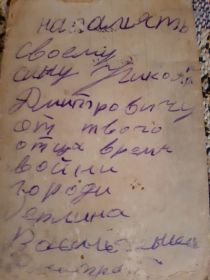 на память
своему
сину Никола
Дмитровичу
от твого
отца время
войни
городи
Берлина